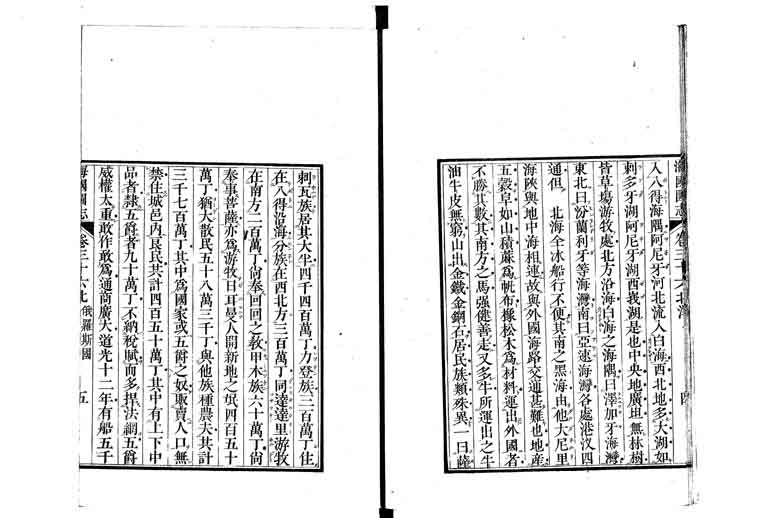 海國圖志 卷三十六 北洋 四
入八得海隅阿尼牙河北流入白海西北地多大湖如
刺多牙湖阿尼牙湖西峩湖是也中央地廣坦無林樹
皆草場游牧處北方沿海白海之海隅曰澤加牙海灣
東北曰汾蘭利牙等海灣南曰亞速海灣各處港汊四
通但北海全冰船行不便其南之黑海由他大尼里
海陜與地中海相連故與外國海路交通甚難也地産
五穀阜如山積蔴爲帆布橡松木爲材料運出外國者
不勝其數其南方之馬强健善走又多牛所運出之牛
油牛皮無窮山出金鐵金鋼石居民族類殊異一曰薩
刺瓦族居其大半四千四百萬丁力登族三百萬丁住
在八得沿海分族在西北方三百萬丁同達達里游牧
在南方二百萬丁尙奉回回之敎甲木族六十萬丁尙
奉事菩薩亦爲游牧日耳曼人開新地之氓四百五十
萬丁猶大散民五十八萬三千丁與他族種農夫其計
三千七百萬丁其中爲國家或五爵之奴販賣人口無
禁住城邑内良民共計四百五十萬丁其中有上下中
品者隸五爵者九十萬丁不納稅賦而多捍法綱五爵
威權太重敢作敢爲通商廣大道光十二年有船五千
海國圖志 卷三十六 北 俄羅斯國 五